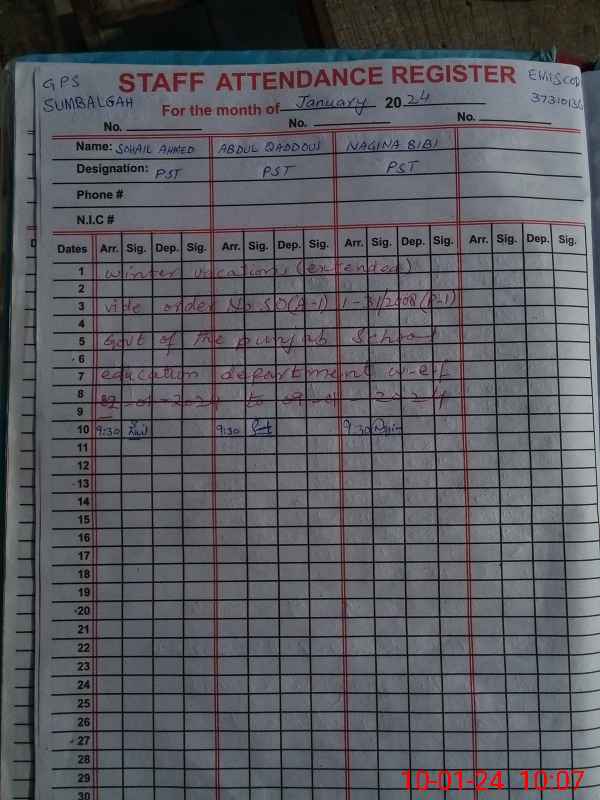 GPS STAFF ATTENDANCE REGISTER EMISCOD
SUMBALGAH For the month of January 2024 3731013
No. No. No.
Name: SOHAIL AHMED ABDUL QADDOUS NAGINA BIBI
Designation: PST PST PST
Phone #
N.I.C #
Dates Arr. Sig. Dep. Sig. Arr. Sig. Dep. Sig. Arr. Sig. Dep. Sig. Arr. Sig. Dep. Sig.
1 Winter vacations (extended)
2
3 vide order No SO(A-1) 1-31/2008(P-1)
4
5 Govt of the punjab School
6
7 education department w-e-f
8 02-01-2024 to 09-01-2024
9
10 9:30 9:30 9:30
11
12
13
14
15
16
17
18
19
20
21
22
23
24
25
26
27
28
29
30
10-01-24 10:07